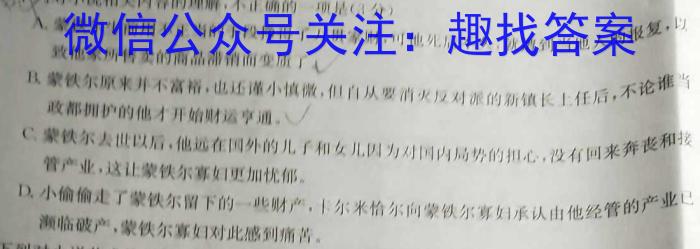 相关内容的理解，不正确的一项是(3分)
微信公众号关注：趣找答案
A.
报复，以
的商品滞销而变质了
B. 蒙铁尔原来并不富裕，也还谨小慎微，但自从要消灭反对派的新镇长上任后，不论谁当
政都拥护的他才开始财运亨通。
C. 蒙铁尔去世以后，他远在国外的儿子和女儿因为对国内局势的担心，没有回来奔丧和接
管产业，这让蒙铁尔寡妇更加忧郁。
D. 小偷偷走了蒙铁尔留下的一些财产，卡尔米恰尔向蒙铁尔寡妇承认由他经管的产业已
濒临破产，蒙铁尔寡妇对此感到痛苦。